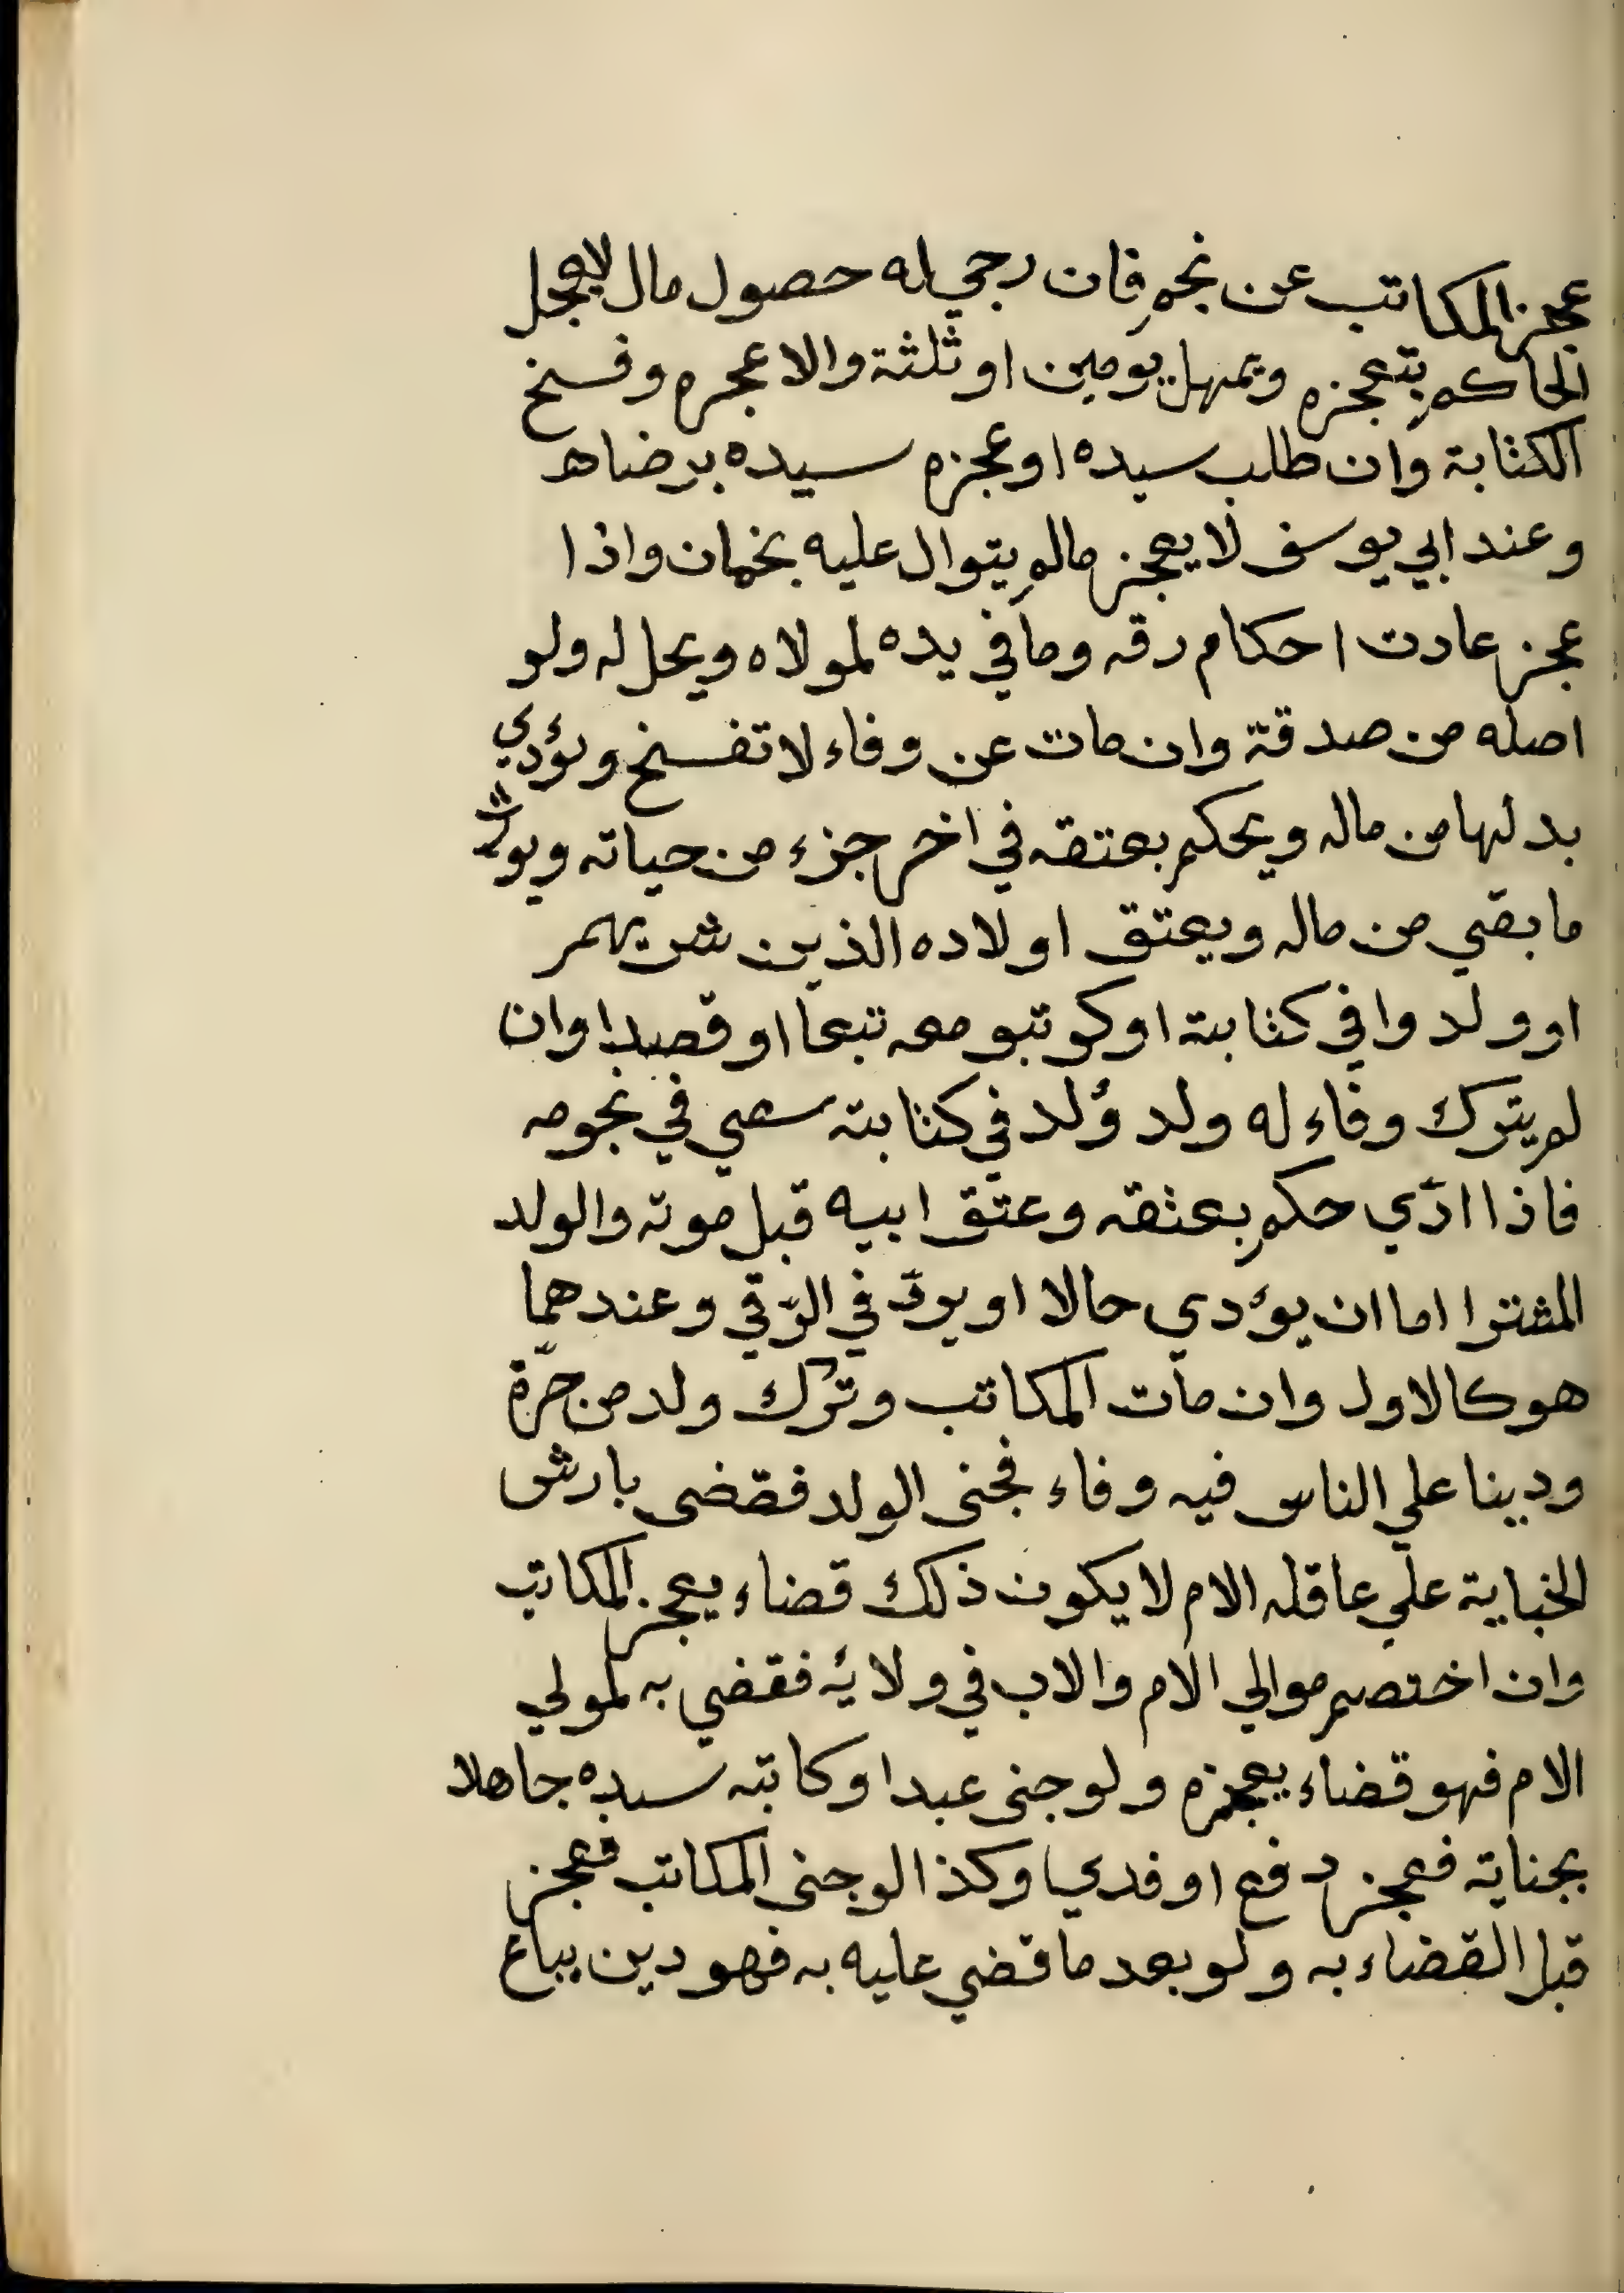 عجز المكاتب عن نجم فان رجي له حصول مال لا يعجل
الحاكم بتعجزه ويمهل يومين او ثلثة والا عجزه وفسخ
الكتابة وان طلب سيده او عجزه سيده برضاه
وعند ابي يوسف لا يعجز مالم يتوال عليه نجمان واذا
عجز عادت احكام رقه وما في يده لمولاه ويحل له ولو
اصله من صدقة وان مات عن وفاء لا تفسخ ويؤدي
بدلها من ماله ويحكم بعتقه في اخر جزء من حياته ويورث
ما بقي من ماله ويعتق اولاده الذين شريهم
او ولدوا في كتابته او كوتبو معه تبعا او قصدا وان
لم يترك وفاء له ولد وُلد في كتابته سعي في نجومه
فاذا ادّي حكم بعتقه وعتق ابيه قبل موته والولد
المشترا اما ان يؤدي حالا او يردّ في الرّقي وعندهما
هو كالاول وان مات المكاتب وترك ولد من حرّة
ودينا علي الناس فيه وفاء فجنى الولد فقضى بارش
الخباية علي عاقله الام لا يكون ذلك قضاء يعجز المكاتب
وان اختصم موالي الام والاب في ولائه فقضي به لمولي
الام فهو قضاء يعجزه ولو جنى عبدا وكاتبه سيده جاهلا
بجناية فعجز دفع او فدي وكذا لو جنى المكاتب فعجز
قبل القضاء به ولو بعد ما قضي عليه به فهو دين يباع